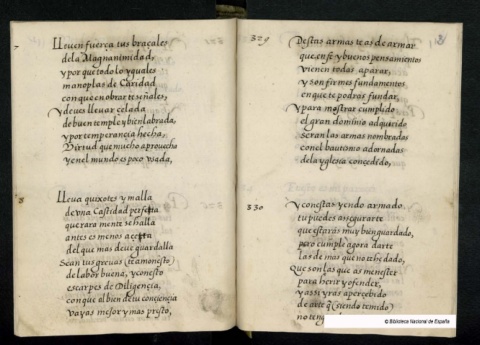 7
Lleuen fuerça tus braçales
dela Magnanimidad,
y por que todo lo yguales
manoplas de Caridad
con que en obrar te señales,
Y deues lleuar çelada
de buen temple y bien labrada,
y por temperançia hecha,
Virtud que mucho aprouecha
y en el mundo es poco vsada,
8
Lleua quixotes y malla
de vna Castidad perfetta
que rara mente se halla
antes es menos açetta
del que mas deue guardalla
Sean tus greuas (te amonesto)
de labor buena, y con esto
escarpes de Diligençia,
con que al bien de tu conçiençia
vayas mejor y mas presto,
329
Destas armas te as de armar
que en fe y buenos pensamientos
vienen todas a parar,
y son firmes fundamentos
en que te podras fundar,
Y para mostrar cumplido
el gran dominio adquirido
seran las armas nombrados
con el bautismo adornadas
dela yglesia conçedido,
330
Y con esta yendo armado
tu puedes assegurarte
que estarás muy bien guardado,
pero cumple agora darte
las de mas que no te he dado,
Que son las que as menester
para herir y ofender,
y assi yras aperçebido
de arte q̃ (siendo temido)
no teng
© Biblioteca Nacional de España